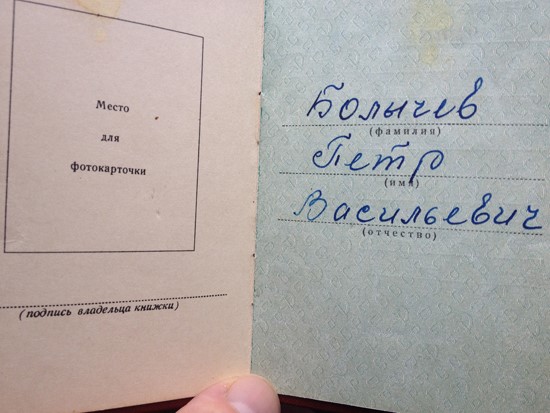 Место
для
фотокарточки
(подпись владельца книжки)
Болычев
(фамилия)
Петр
(имя)
Васильевич
(отчество)